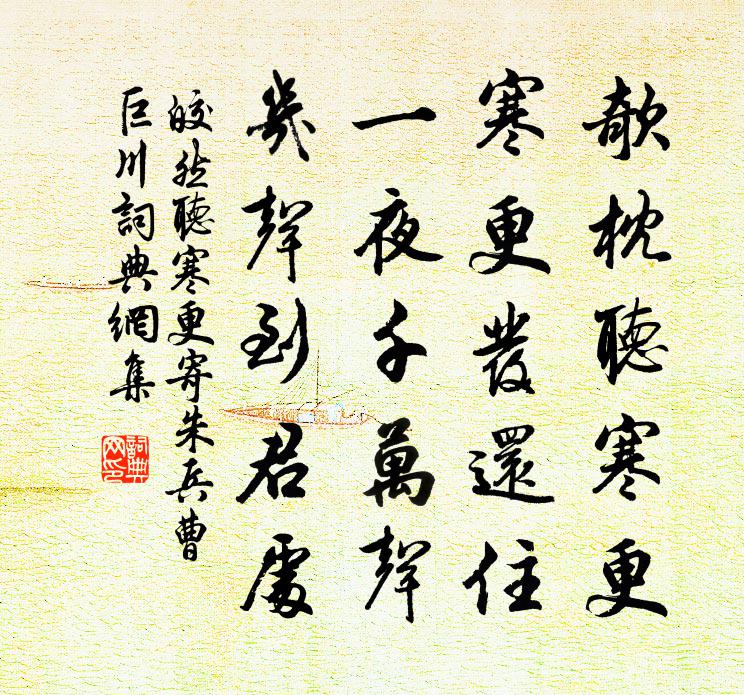 欹枕聽寒更
寒更發還住
一夜千萬聲
幾聲到君處
皎然聽寒更寄朱兵曹
巨川詞典網集
詞典
网印